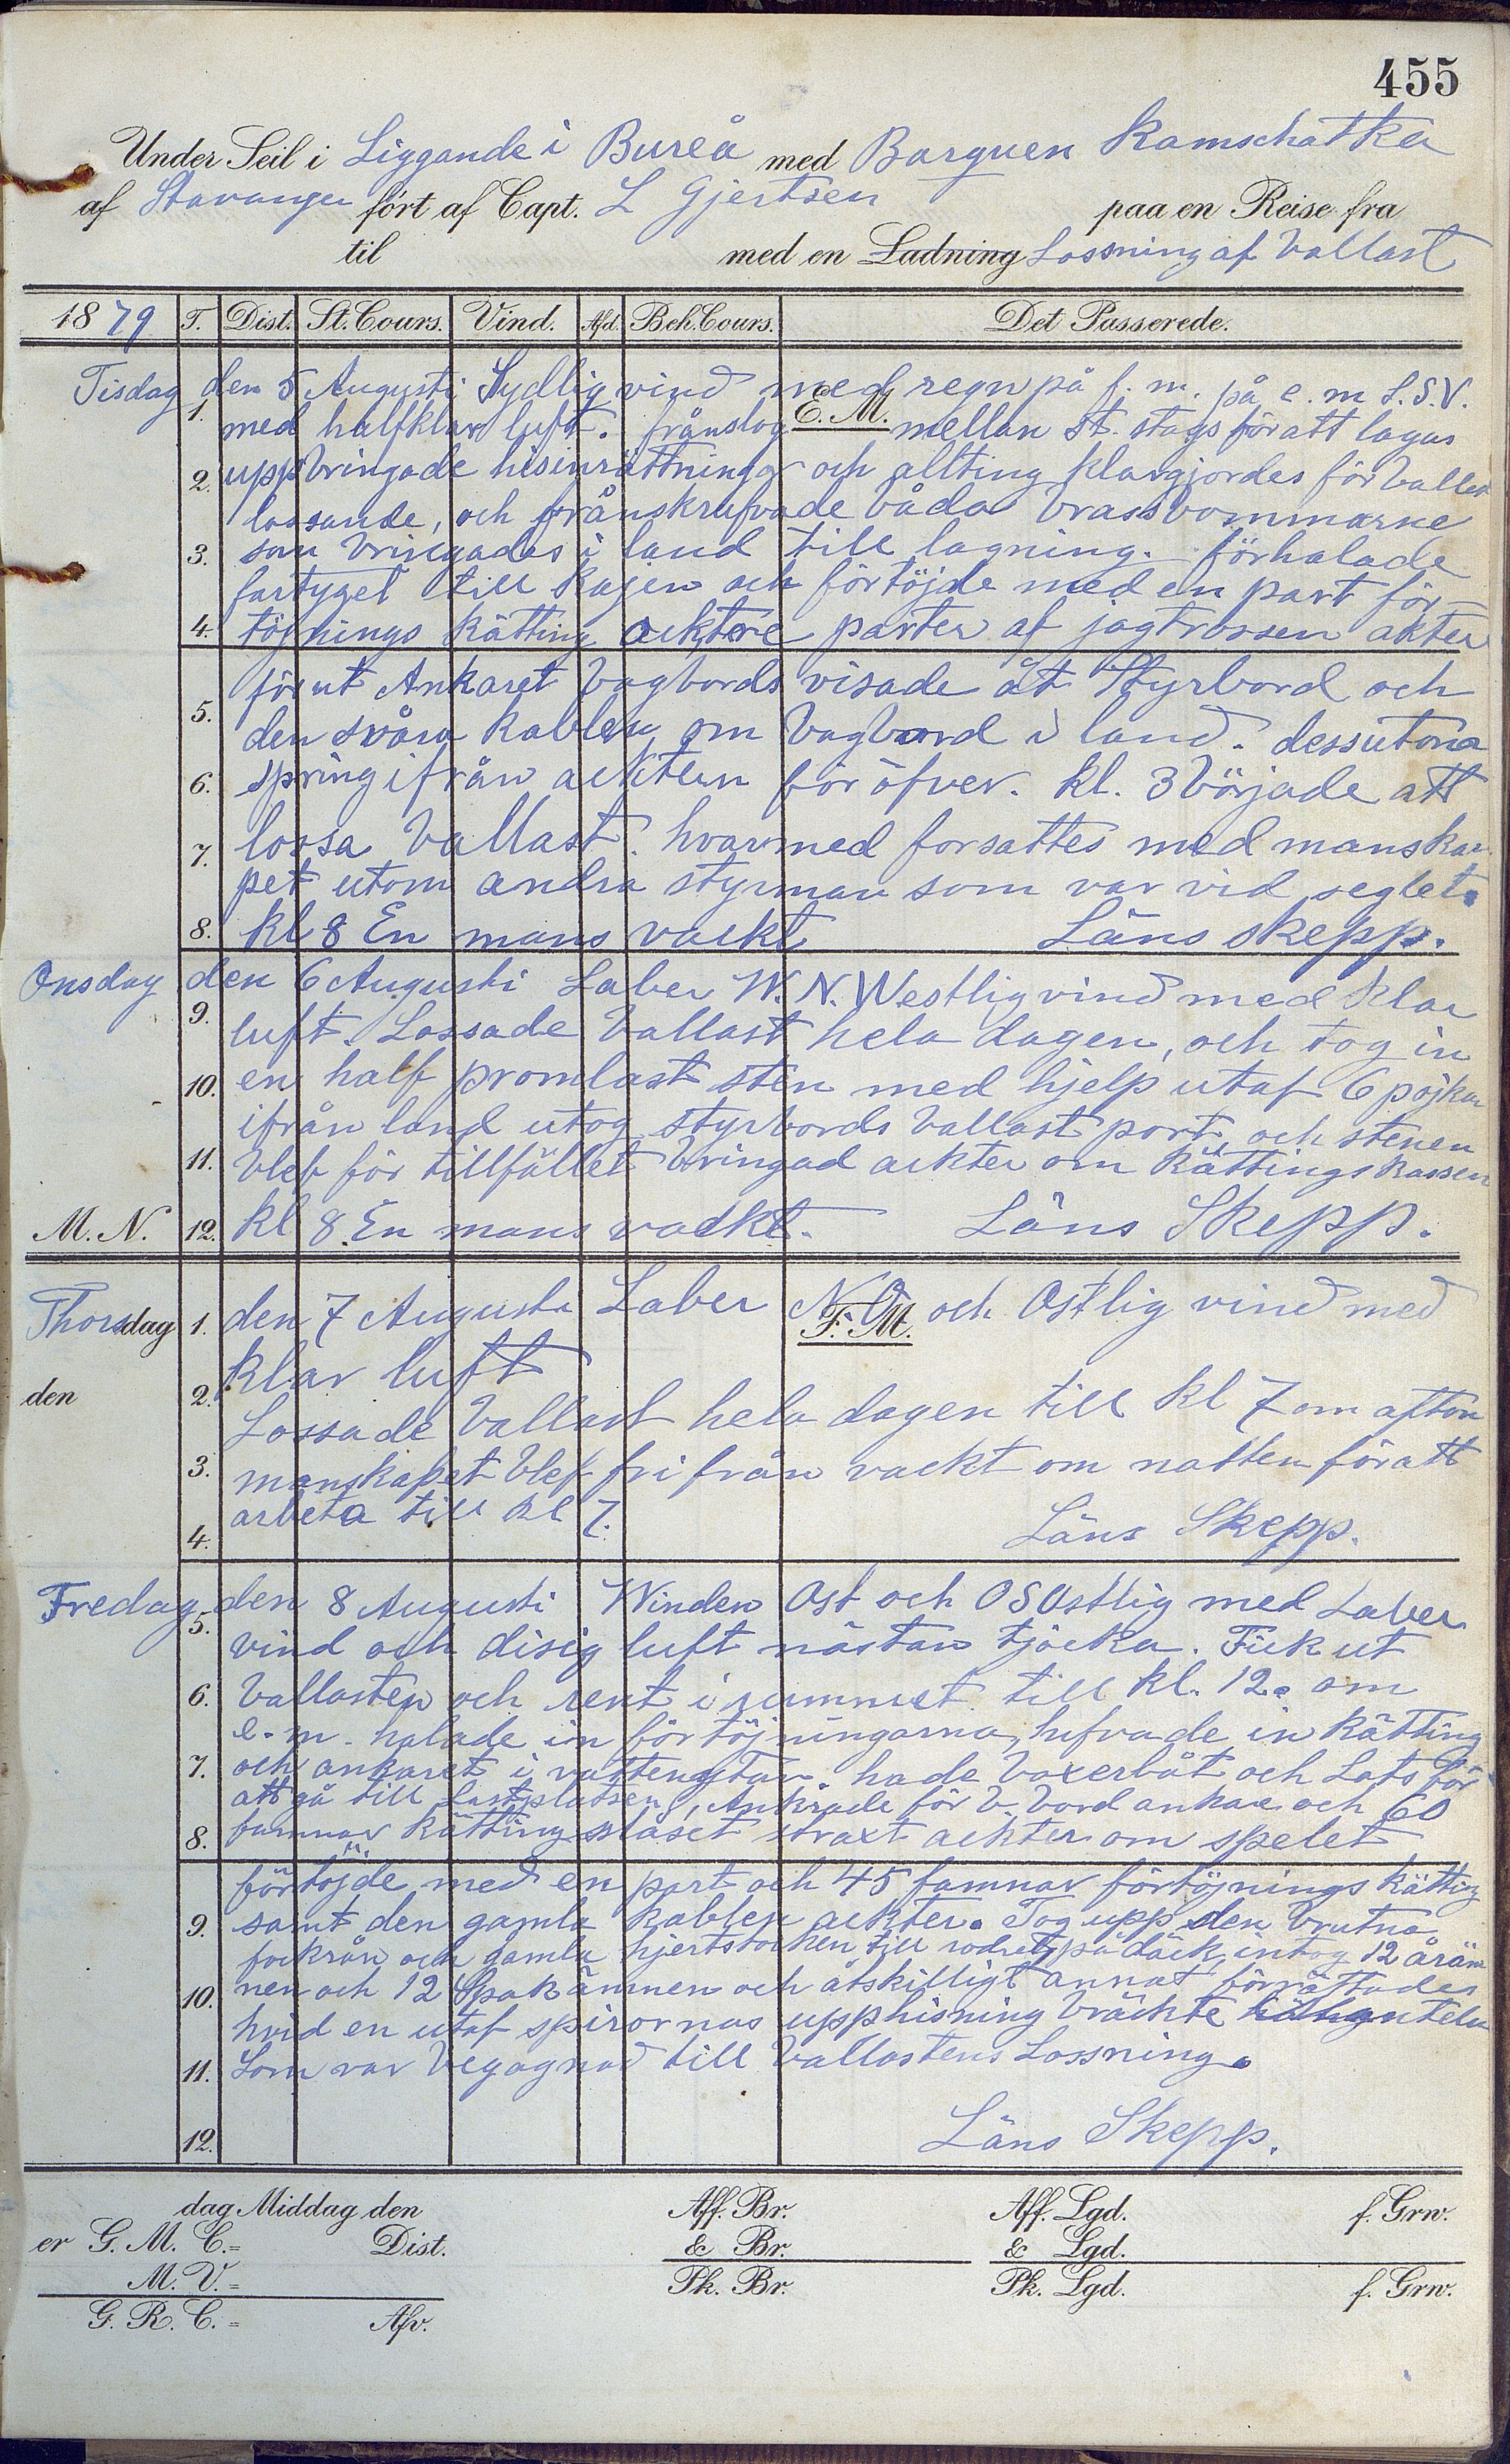 455
Under Seil i Liggande i Bureå med Barquen Kamschatka
af Stavanger ført af Capt. L Gjertsen paa en Reise fra
til med en Ladning Lossning af Ballast
1879 T. Dist. St. Cours. Vind. Afd. Beh. Cours. Det Passerede.
Tisdag den 5 Augusti Sydlig vind med regn på f. m. på e. m S.S.V.
1. med halfklar luft. frånslog E. M. mellan st. stags för att lagas
2. upp bringade hisinrättningar och allting klargjordes för ballast
lossande, och frånskrufvade båda brassbommarne
3. som bringades i land till lagning. förhalade
fartyget till Kajen och förtöjde med en part för-
4. töjnings Kätting acktere parter af jagtrossen akter
förut Ankaret bagbords visade åt Styrbord och
5. den svåra kablen om bagbord i land. dessutom
6. spring ifrån ackter för öfver. kl. 3 började att
7. lossa ballast. hvarmed forsattes med manska-
pet utom andra styrman som var vid seglet.
8. kl 8 En mans vackt Läns skepp.
Onsdag den 6 Augusti Laber W. N. Westlig vind med klar
9. luft. Lossade ballast hela dagen, och tog in
10. en half promlast sten med hjelp utaf 6 pojkar
ifrån land utog styrbords ballast port, och stenen
11. blef för tillfället bringad ackter om Kättings kassen
M. N. 12. kl 8 En mans vackt. Läns Skepp.
Thorsdag 1. den 7 Augusti Laber N. O. F. M. och Ostlig vind med
den 2. klar luft
Lossade ballast hela dagen till kl 7 om afton
3. manskapet blef fri från vackt om natten för att
4. arbeta till kl 7. Läns Skepp.
Fredag 5. den 8 Augusti Winden Ost och OSOstlig med Laber
vind och disig luft nästan tjocka. Fick ut
6. ballasten och rent i rummet till kl. 12. om
e. m. halade in förtöjningarna, hifvade in Kätting
7. och ankaret i vattengtar. hade boxerbåt och Lots för
att gå till Lastplatsen, Ankrade för B. bord ankare och 60
8. famnar Kätting slaset straxt ackter om spelet
förtöjde med en part och 45 famnar förtöjnings Kätting
9. samt den gamla kablen ackter. Tog upp den brutna
fockrån och gamla hjertstocken till rodret, på däck, intog 12 åräm
10. nen och 12 Spakämnen och åtskilligt annat förrättades
hvid en utaf spirornas upphisning bräckte
11. som var begagnad till ballastens Lossning.
12. Läns Skepp.
dag Middag den Aff. Br. Aff. Lgd. f. Grw.
er G. M. C.= Dist. & Br. & Lgd.
M. V.= Pk. Br. Pk. Lgd. f. Grw.
G. R. C.= Afv.